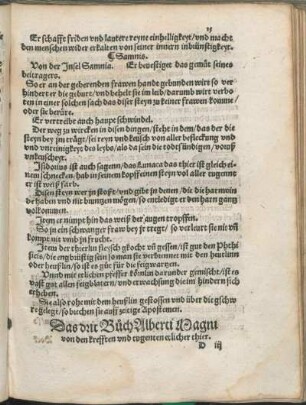 15
Er schafft friden vnd lautere reyne einhelligkeyt / vnd macht
den menschen wider erkalten von seiner innern inbrünstigkeyt.
¶ Samnis.
Von der Insel Samnia. Er bevestiget das gemüt seines
beitragers.
So er an der geberenden frawen hande gebunden wirt so ver
hindert er die geburt / vnd behelt sie im leib / darumb wirt verbo
ten in einer solchen sach das diser steyn zu keiner frawen komme /
oder sie berüre.
Er vertreibt auch haupt schwindel.
Der weg zu wircken in disen dingen / stehet in dem / das der die
steyn bey jm tregt / sei reyn vnd keusch von aller befleckung vnd
vnd vnreinigkeyt des leybs / als da sein die todtsündigen / vnnd
vnkeuscheyt.
Isidorus ist auch sagen / das das thier ist gleich ei
nem schnecken / hab in seinem kopff einen steyn vol augen vnnd
er ist weiß farb.
Disen steyn wer jn stoßt / vnd gibt jn denen / die die harwin
de haben vnd nit bruntzen mögen / so entledigt er den harn gang
volkommen.
Item er nimpt hin das weiß der augen tropffen.
So jn ein schwanger fraw bey jr tregt / so verleurt sie nit vnd
kompt nit vmb jr frucht.
Item der thierlin fleysch gekocht vnd gessen / ist gut den
sicis / die engbrüstig sein so man sie vermenget mit den
oder / so ist es gut für die feigwartzen.
Vnnd mit etlichen pfeffer körnlin darunder gemischt / ist es
vast gut allen feigblatern / vnd erwachsung die im hindern sich
erheben.
Sie also rohe mit dem gestossen vnd über die gschw
gelegt / so brechen sie auff etzige Apostemen.
Das drit Büch Alberti Magni
von den krefften vnd tugenten etlicher thier.
D iij